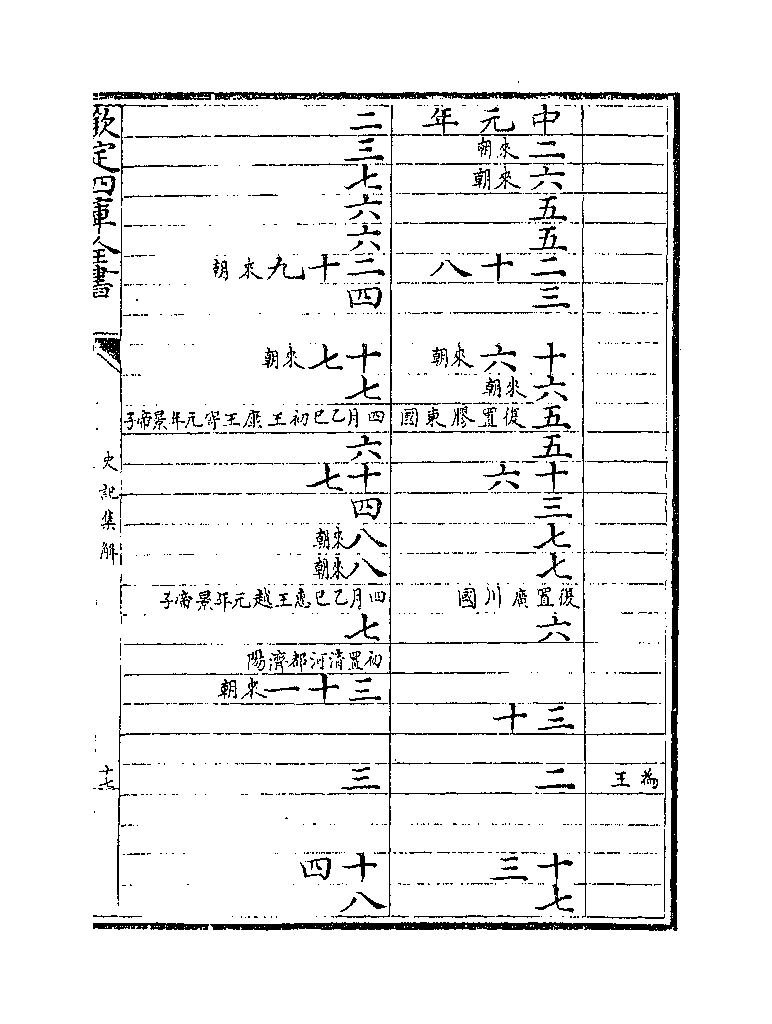 為王
中元年
二來朝
六來朝
五
五
二十八
三
十六來朝
六來朝
五復置膠東國
五
十六
三
七
七
復置廣川國
六
三十
二
十三
十七
二
三
七
六
六
二十九來朝
四
十七來朝
七
四月乙巳初王康王寄元年景帝子
六
十七
四
八來朝
八來朝
四月乙巳惠王越元年景帝子
七
初置清河都濟陽
三十一來朝
三
十四
十八
欽定四庫全書
史記集解
十七